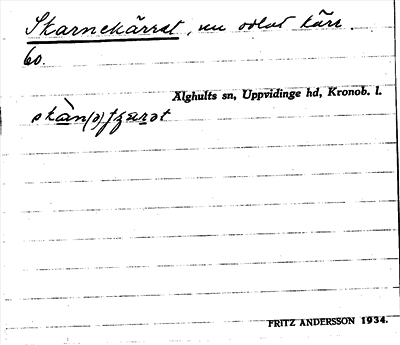 Skarnekärret, nu odlat kärr.
60.
Älghults sn, Uppvidinge hd, Kronob. l.
FRITZ ANDERSSON 1934.